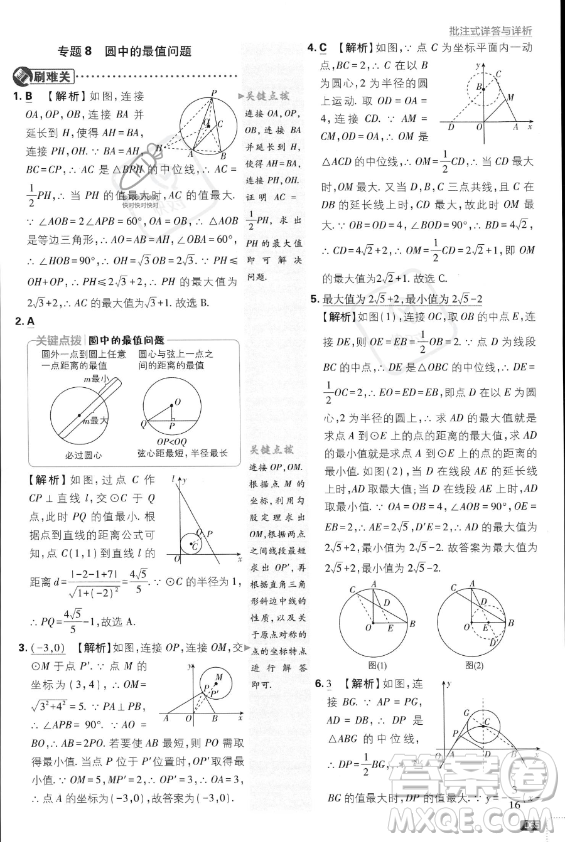 批注式详答与详析
专题8 圆中的最值问题
刷难关
1. B 【解析】如图,连接
OA,OP,OB,OH,AB并
延长到H,使得AH=AB,
连接PH,OH.∵ AB=AH,
BC=CP,∴ AC是△BPH的中位线,∴ AC=
1/2 PH,∴ 当PH的值最大时,AC的值最大.
∵ ∠AOB=2∠APB=60°,OA=OB,∴ △AOB
是等边三角形,∴ ∠AOB=60°,AH=AB=OA,
∴ ∠HOB=90°,∴ OH=2√3.∵ PH≤
OP+OH,∴ PH≤2√3+2,∴ PH的最大值为
2√3+2,∴ AC的最大值为√3+1.故选B.
关键点拨
连接OA,OP,
OB,延长BA
到H,使得
AH=AB,连接
PH,OH.
证明AC=
1/2 PH,求出
PH的最大值
即可解决
问题.
2. A
关键点拨 圆中的最值问题
圆外一点到圆上任意
一点距离的最值
圆心与弦上一点之
间的距离的最值
m最小
m最大
必过圆心
OP<OQ
弦心距最短,半径最长
【解析】如图,过点C作
CP⊥直线l,交⊙C于Q
点,此时PQ的值最小.根
据点到直线的距离公式可
知,点C(1,1)到直线l的
距离d=|-2-1+7|/√(1²+(-2)²)=4√5/5.∵ ⊙C的半径为1,
∴ PQ=4√5/5-1,故选A.
3. (-3,0) 【解析】如图,连接OP,连接OM,交
⊙M于点P′.∵ 点M的
坐标为(3,4),∴ OM=
√(3²+4²)=5.∵ PA⊥PB,
∴ ∠APB=90°.∵ OA=OB,
∴ AB=2PO.若要使AB最短,则PO需取得最
小值.当点P位于P′位置时,OP取得最小值.
∵ OM=5,MP′=2,∴ OP′=3,∴ OA=3,
∴ 点A的坐标为(-3,0),故答案为(-3,0).
关键点拨
连接OP,OM.
根据点M的
坐标,利用勾
股定理求出
OM,根据两点
之间线段最短,
得出OP最小值.
根据直角三角
形斜边中线的
性质,以及关
于原点对称的
点的坐标特点
进行解答
即可.
4. C 【解析】如图,∵ 点C为坐标平面内一动
点,BC=2,∴ 点C在以B
为圆心,2为半径的圆
上运动.取OD=OA=
4,连接CD.∵ AM=
CM,OD=OA,∴ OM是
△ACD的中位线,∴ OM=1/2CD,∴ 当OM
最大时,CD最大.又当D,B,C三点共线,且点
C在DB的延长线上时,OM最大.∵ OB=
OD=4,∠BOD=90°,∴ BD=4√2,∴ CD=4√2+
2,∴ OM=1/2CD=1/2×(4√2+2)=2√2+1,即
OM的最大值为2√2+1.故选C.
5. 最大值为2√5+2,最小值为2√5-2
【解析】如图(1),连接OC,取OB的中点E,连
接DE.则OE=EB=1/2OB=2.在△OBC中,DE
是△OBC的中位线,∴ DE=
1/2OC=2,∴ EO=ED=EB,即点D是在以E为
圆心,2为半径的圆上,∴ 求AD的最大值就是
求点A到⊙E上的点的距离的最大值,求AD
的最小值就是求点A与⊙E上的点的距离的
最小值.如图(2),当D在线段AE的延长线
上时,AD取最大值;当D在线段AE上时,AD
取最小值.∵ OA=OB=4,∠AOB=90°,OE=
EB=2,∴ AE=2√5,DE=2,∴ AD的最大值为
2√5+2,最小值为2√5-2.故答案为最大值为
2√5+2,最小值为2√5-2.
图(1)
图(2)
6. 3 【解析】如图,连
接BG.∵ AP=PG,
AD=DB,∴ DP是
△ABG的中位线,
∴ DP=1/2BG,∴ 当
BG的值最大时,DP的值最大.
16